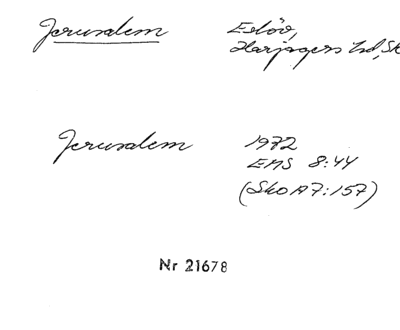 Jerusalem
Eslöv,
Harjagers hd, Sk
Jerusalem
1972
EMS 8:44
(Sko A7:157)
Nr 21678